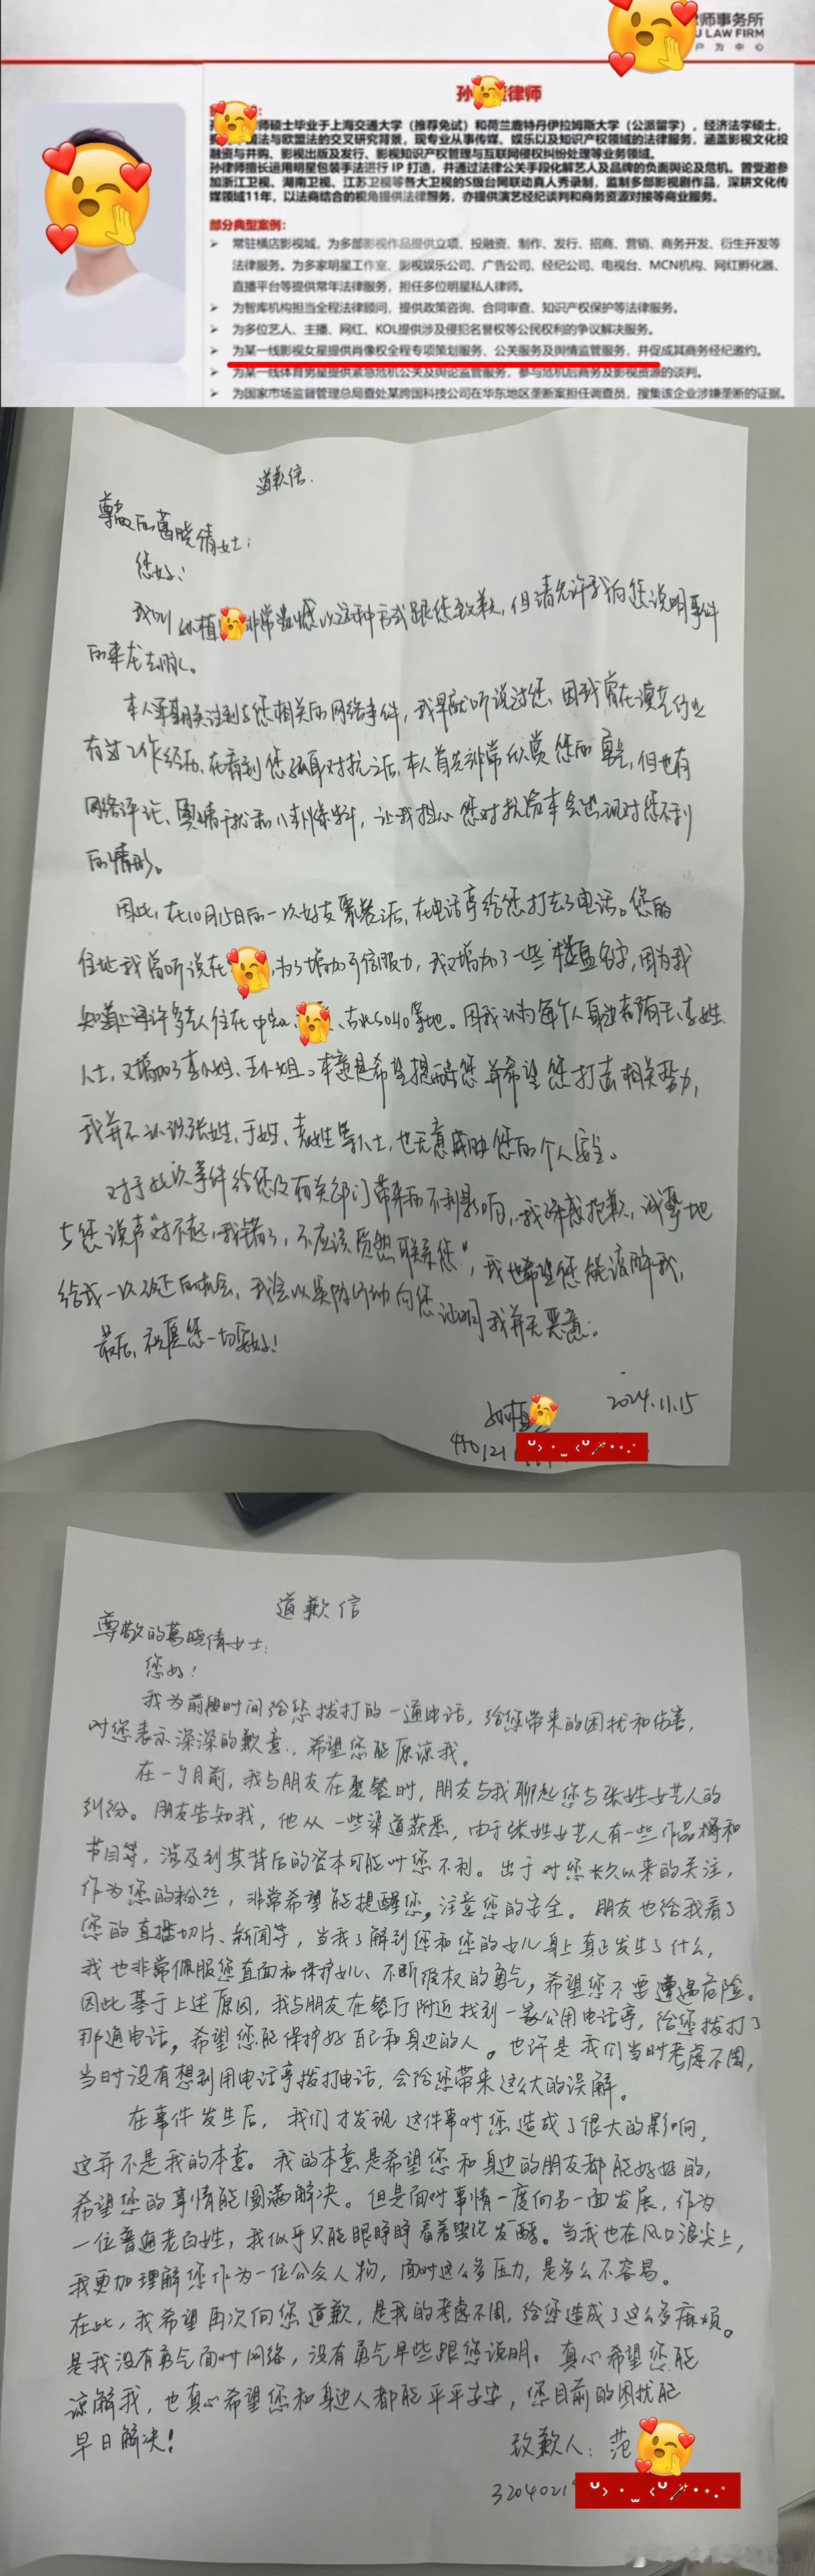 师事务所
U LAW FIRM
户 为 中 心
孙 律师
师硕士毕业于上海交通大学（推荐免试）和荷兰鹿特丹伊拉姆斯大学（公派留学），经济法学硕士，
法与欧盟法的交叉研究背景，现专业从事传媒、娱乐以及知识产权领域的法律服务，涵盖影视文化投
融资与并购、影视出版及发行、影视知识产权管理与互联网侵权纠纷处理等业务领域。
孙律师擅长运用明星包装手法进行 IP 打造，并通过法律公关手段化解艺人及品牌的负面舆论及危机。曾受邀参
加浙江卫视、湖南卫视、江苏卫视等各大卫视的S级台网联动真人秀录制，监制多部影视剧作品，深耕文化传
媒领域11年，以法商结合的视角提供法律服务，亦提供演艺经纪谈判和商务资源对接等商业服务。
部分典型案例：
➢ 常驻横店影视城，为多部影视作品提供立项、投融资、制作、发行、招商、营销、商务开发、衍生开发等
法律服务。为多家明星工作室、影视娱乐公司、广告公司、经纪公司、电视台、MCN机构、网红孵化器、
直播平台等提供常年法律服务，担任多位明星私人律师。
➢ 为智库机构担当全程法律顾问，提供政策咨询、合同审查、知识产权保护等法律服务。
➢ 为多位艺人、主播、网红、KOL提供涉及侵犯名誉权等公民权利的争议解决服务。
➢ 为某一线影视女星提供肖像权全程专项策划服务、公关服务及舆情监管服务，并促成其商务经纪邀约。
➢ 为某一线体育男星提供紧急危机公关及舆论监管服务，参与危机后商务及影视资源的谈判。
➢ 为国家市场监督管理总局查处某跨国科技公司在华东地区垄断案担任调查员，搜集该企业涉嫌垄断的证据。
道歉信.
尊敬的葛晓倩女士：
您好！
我叫孙植 非常遗憾以这种方式跟您致歉，但请允许我向您说明事件
的来龙去脉。
本人 关注到与您相关的网络事件，我早就听说过您、因我曾在演艺行业
有过工作经历、在看到您孤身对抗之后，本人首先非常欣赏您的勇气，但也有
网络评论、舆情干扰和八卦爆料，让我担心您对抗资本会出现对您不利
的情形。
因此，在10月15日的一次好友聚餐之后，在电话亭给您打去了电话。您的
住址我曾听说在 ，为了增加可信服力，我又增加了一些楼盘名字，因为我
知道上海许多艺人住在中 、古北SOHO等地。因我认为每个人身边都有王、李姓
人士，又增加了李小姐、王小姐。本意是希望提醒您并希望您打击相关势力，
我并不认识张姓、于姓、袁姓等人士，也无意威胁您的个人安全。
对于此次事件给您及有关部门带来的不利影响，我深感抱歉，诚挚地
与您说声“对不起，我错了，不应该贸然联系您”，我也希望您能谅解我，
给我一次改正的机会，我会以实际行动向您证明我并无恶意。
最后，祝愿您一切安好！
孙植 2024.11.15
440121
道歉信
尊敬的葛晓倩女士：
您好！
我为前段时间给您拨打的一通电话，给您带来的困扰和伤害，
对您表示深深的歉意，希望您能原谅我。
在一个月前，我与朋友在聚餐时，朋友与我聊起您与张姓女艺人的
纠纷。朋友告知我，他从一些渠道获悉，由于张姓女艺人有一些作品和
节目等，涉及到其背后的资本可能对您不利。出于对您长久以来的关注，
作为您的粉丝，非常希望能提醒您，注意您的安全。朋友也给我看了
您的直播切片、新闻等，当我了解到您和您的女儿身上真正发生了什么，
我也非常佩服您直面和保护女儿、不断维权的勇气，希望您不要遭遇危险。
因此基于上述原因，我与朋友在餐厅附近找到一家公用电话亭，给您拨打了
那通电话，希望您能保护好自己和身边的人。也许是我们当时考虑不周，
当时没有想到用电话亭拨打电话，会给您带来这么大的误解。
在事件发生后，我们才发现这件事对您造成了很大的影响，
这并不是我的本意。我的本意是希望您和身边的朋友都能好好的，
希望您的事情能圆满解决。但是面对事情一度向另一面发展，作为
一位普通老百姓，我似乎只能眼睁睁看着舆论发酵。当我也在风口浪尖上，
我更加理解您作为一位公众人物，面对这么多压力，是多么不容易。
在此，我希望再次向您道歉，是我的考虑不周，给您造成了这么多麻烦。
是我没有勇气面对网络，没有勇气早些跟您说明。真心希望您能
谅解我，也真心希望您和身边人都能平平安安，您目前的困扰能
早日解决！
致歉人：范
3204021